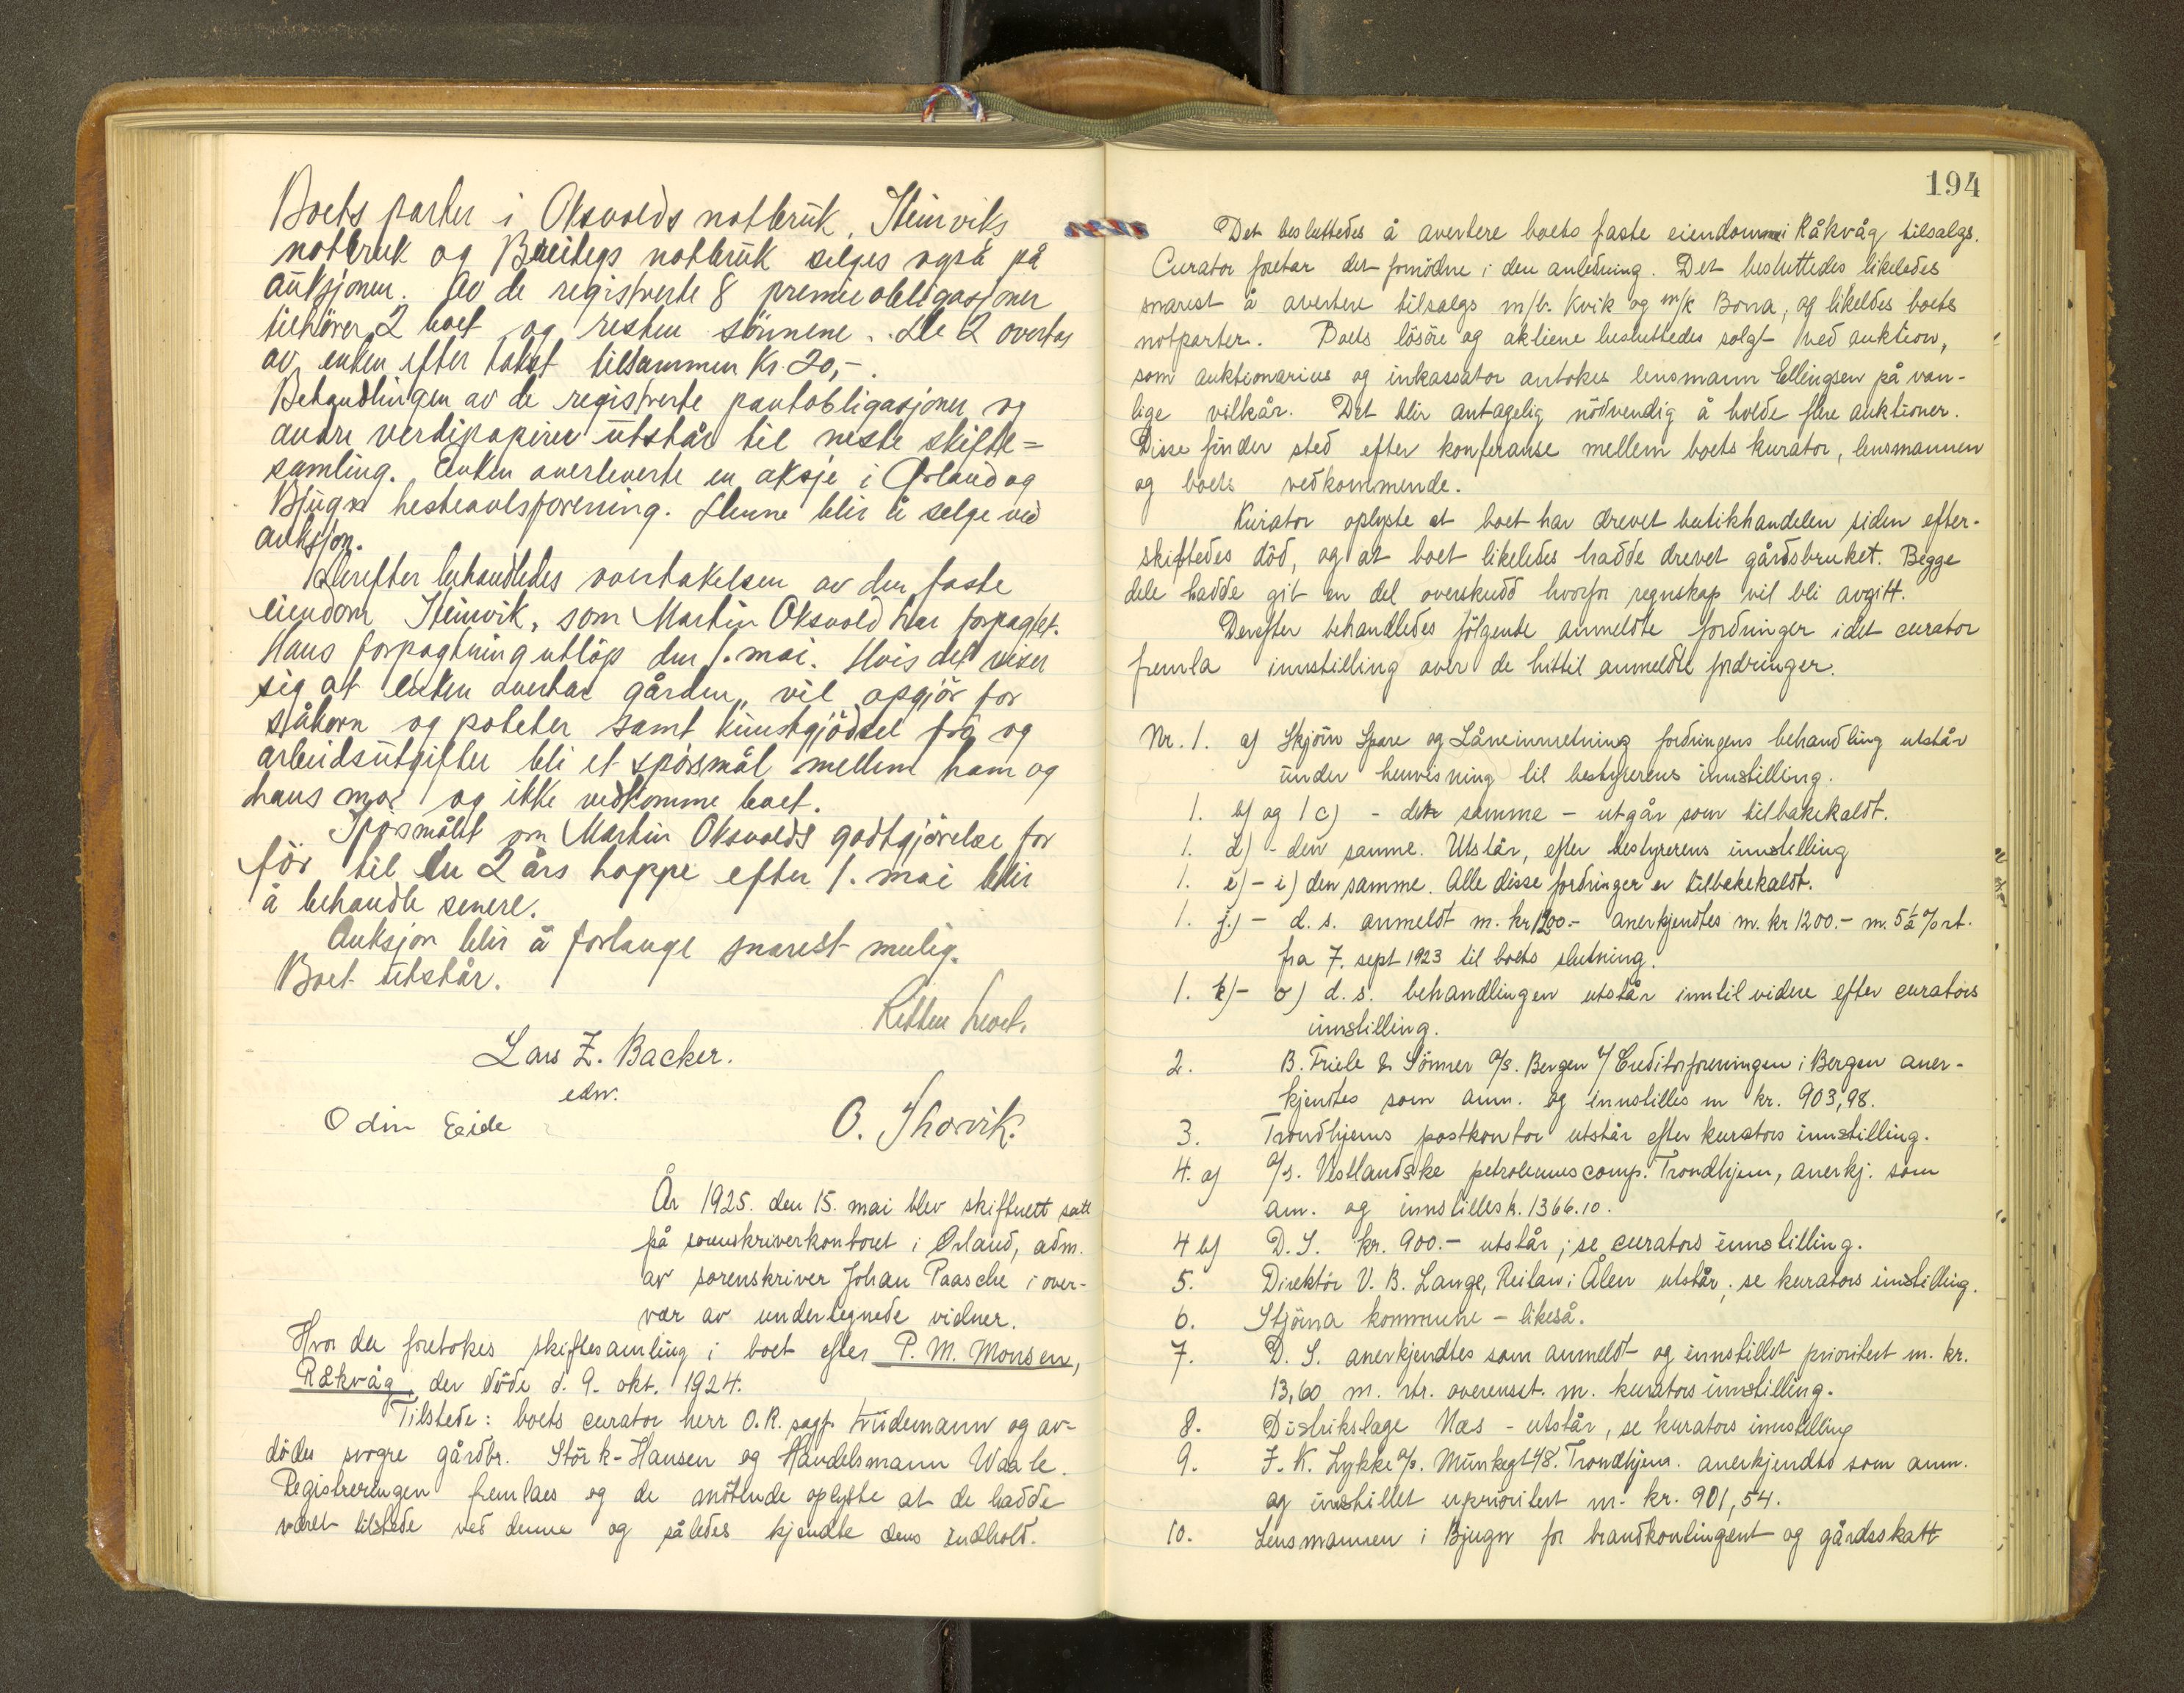 Boets parter i Oksvolds notbruk, Steinviks
notbruk og Breitegs notbruk selges også på
auksjonen. Av de registrerte 8 premieobligasjoner
tilhører 2 boet og resten sönnene. De 2 overtas
av enken efter takst tilsammen kr. 20,-.
Behandlingen av de registrerte pantobligasjoner og
andre verdipapirer utstår til neste skifte=
samling. Enken overleverte en aksje i Ørland og
Bjugn hesteavlsforening. Denne blir å selge ved
auksjon.
Derefter behandledes overtakelsen av den faste
eiendom Steinvik, som Martin Oksvold har forpagtet.
Hans forpagtning utlöp den 1. mai. Hvis det viser
sig at enken overtar gården, vil opgjör for
såkorn og poteter samt kunstgjödsel frö og
arbeidsutgifter bli et spörsmål mellem ham og
hans mor og ikke vedkomme boet.
Spörsmålet om Martin Oksvolds godtgjörelse for
fôr til en 2 års hoppe efter 1. mai blir
å behandle senere.
Auksjon blir å forlange snarest mulig.
Boet utstår.
Retten hevet.
Lars Z. Backer.
edv.
Odin Eide
O. Thorvik.
År 1925. den 15. mai blev skifterett satt
på sorenskriverkontoret i Ørland, adm.
av sorenskriver Johan Paasche i over-
vær av undertegnede vidner.
Hvor der foretokes skiftesamling i boet efter P. M. Monsen,
Råkvåg, der döde d. 9. okt. 1924.
Tilstede: boets curator herr O.R. sagf. Lüdemann og av-
dödes svogre gårdbr. Störk-Hansen og Handelsmann Waale.
Registreringen fremlaes og de mötende oplyste at de hadde
været tilstede ved denne og således kjendte dens indhold.
194
Det besluttedes å avertere boets faste eiendommer i Råkvåg tilsalgs.
Curator foretar det fornödne i den anledning. Det besluttedes likeledes
snarest å avertere tilsalgs m/b. Kvik og m/k Bona, og likeldes boets
notparter. Boets lösöre og aktiene besluttedes solgt ved auktion,
som auktionarius og inkassator antokes lensmann Ellingsen på van-
lige vilkår. Det blir antagelig nödvendig å holde flere auktioner.
Disse finder sted efter konferanse mellem boets kurator, lensmannen
og boets vedkommende.
Kurator oplyste at boet har drevet butikhandelen siden efter-
skiftedes död, og at boet likeledes hadde drevet gårdsbruket. Begge
dele hadde git en del overskudd hvorfor regnskap vil bli avgitt.
Derefter behandledes fölgende anmeldte fordringer idet curator
fremla innstilling over de hittil anmeldte fordringer.
Nr. 1. a) Skjörn Spare og Låneinnretning fordringens behandling utstår
under henvisning til bestyrerens innstilling.
1. b) og 1 c) - den samme - utgår som tilbakekaldt.
1. d) - den samme. Utstår, efter bestyrerens innstilling
1. e) - i) den samme. Alle disse fordringer er tilbakekaldt.
1. j.) - d. s. anmeldt m. kr 1200.- anerkjendtes m. kr 1200.- m. 5½ % rt.
fra 7. sept 1923 til boets slutning.
1. k) - o) d. s. behandlingen utstår inntil videre efter curators
innstilling.
2. B. Friele & Sönner A/S. Bergen v/ Creditorforeningen i Bergen aner-
kjendtes som anm. og innstilles m kr. 903,98.
3. Trondhjems postkontor utstår efter kurators innstilling.
4. a) A/S. Vestlandske petroleumscomp. Trondhjem, anerkj. som
am. og innstilles k. 1366.10.
4 b) D. S. kr. 900.- utstår; se curators innstilling.
5. Direktör V. B. Lange, Reitan i Ålen utstår; se kurators innstilling.
6. Stjörna kommune - likeså.
7. D. S. anerkjendtes som anmeldt og innstillet prioritert m. kr.
13,60 m. rtr. overensst. m. kurators innstilling.
8. Distrikslæge Næs - utstår, se kurators innstilling
9. J. K. Lykke A/S. Munkegt 48. Trondhjem. anerkjendtes som anm.
og innstillet uprioritert m. kr. 901,54.
10. Lensmannen i Bjugn for brandkontingent og gårdsskatt